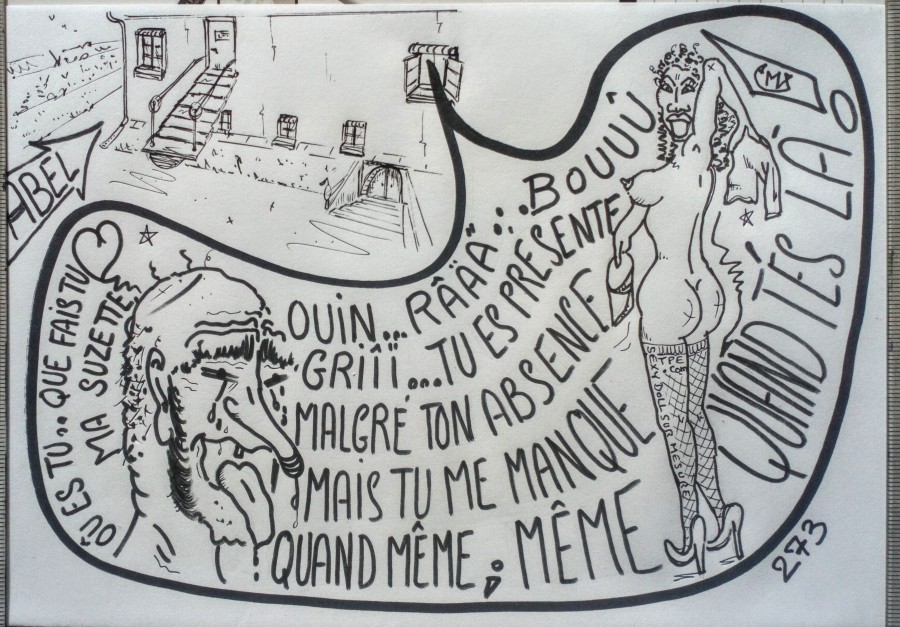 ABEL
OÙ ES TU.. QUE FAIS TU
MA SUZETTE
OUIN... RÂÄÄ... BOUUÛ
GRIÎÏ...TU ES PRÉSENTE
MALGRÉ TON ABSENCE
MAIS TU ME MANQUE
QUAND MÊME, MÊME
QUAND T'ES LÀ!
TPE.COM
SEXY DOLL SUR MESURE
273